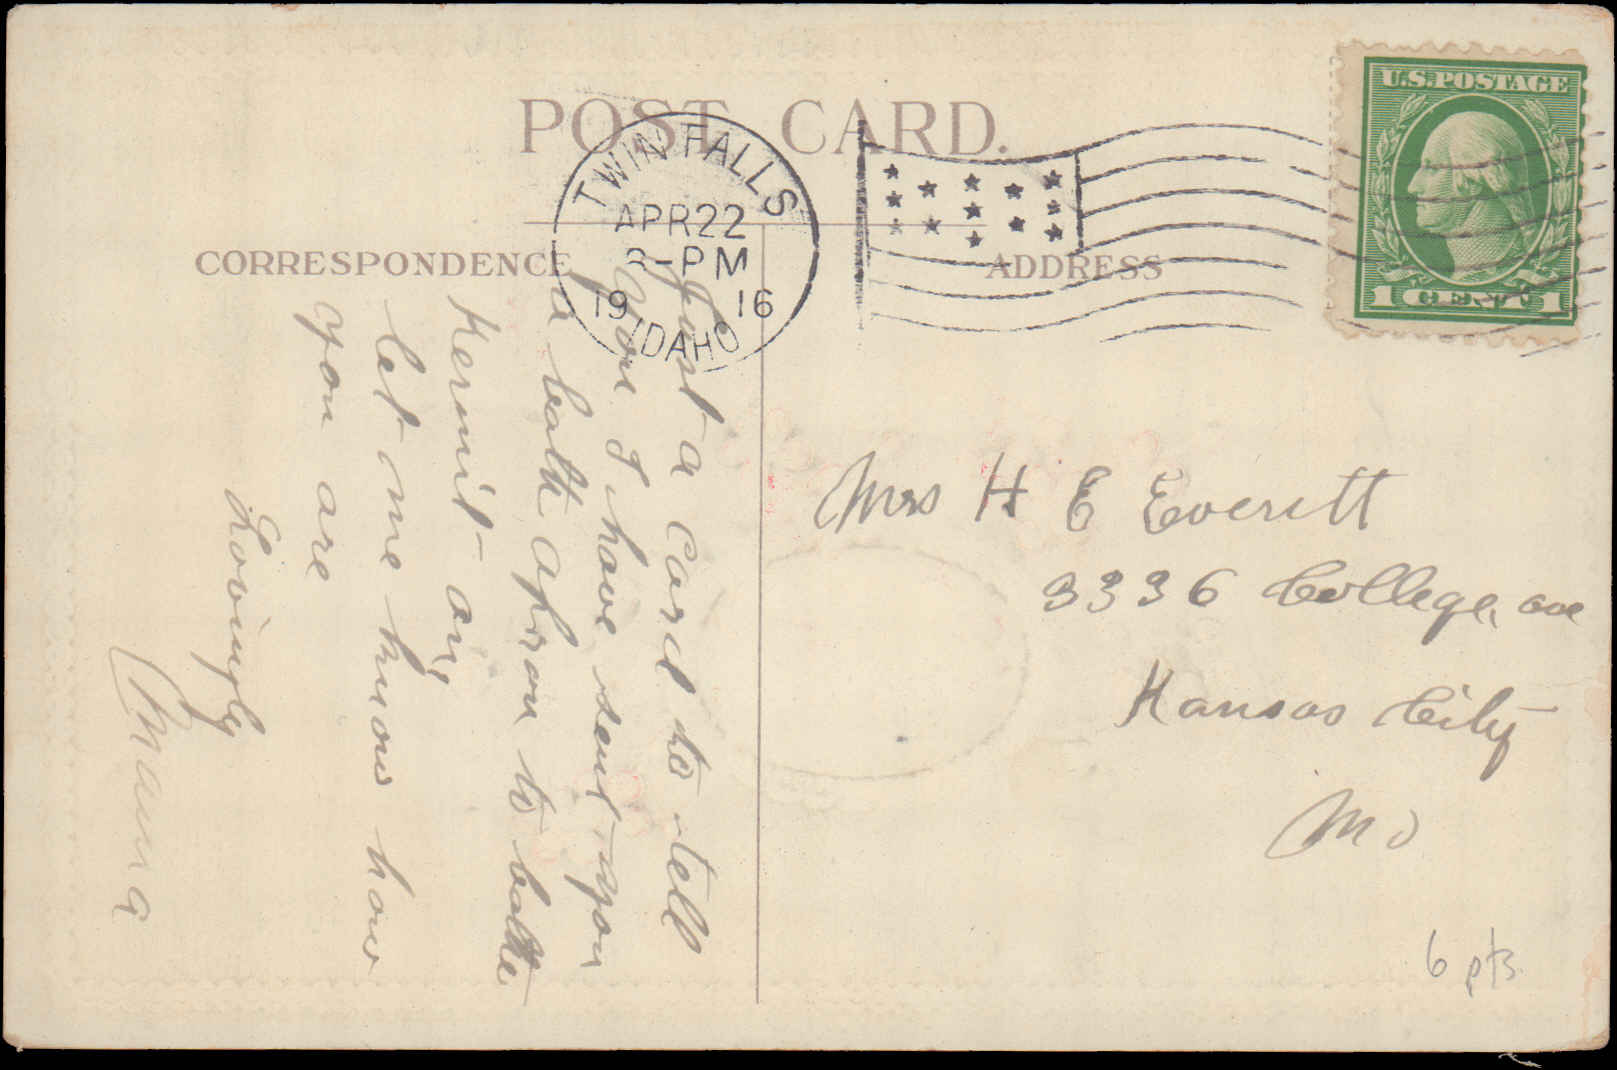 POST CARD.
TWIN FALLS
APR 22
-PM
19 16
IDAHO
CORRESPONDENCE
ADDRESS
U.S. POSTAGE
1 CENT 1
Just a card to tell
you I have sent you
a bath apron to bathe
Kermit on,
let me know how
you are
Lovingly
Mama
Mrs H E Everitt
3336 College, ave
Kansas City
Mo
6 pts